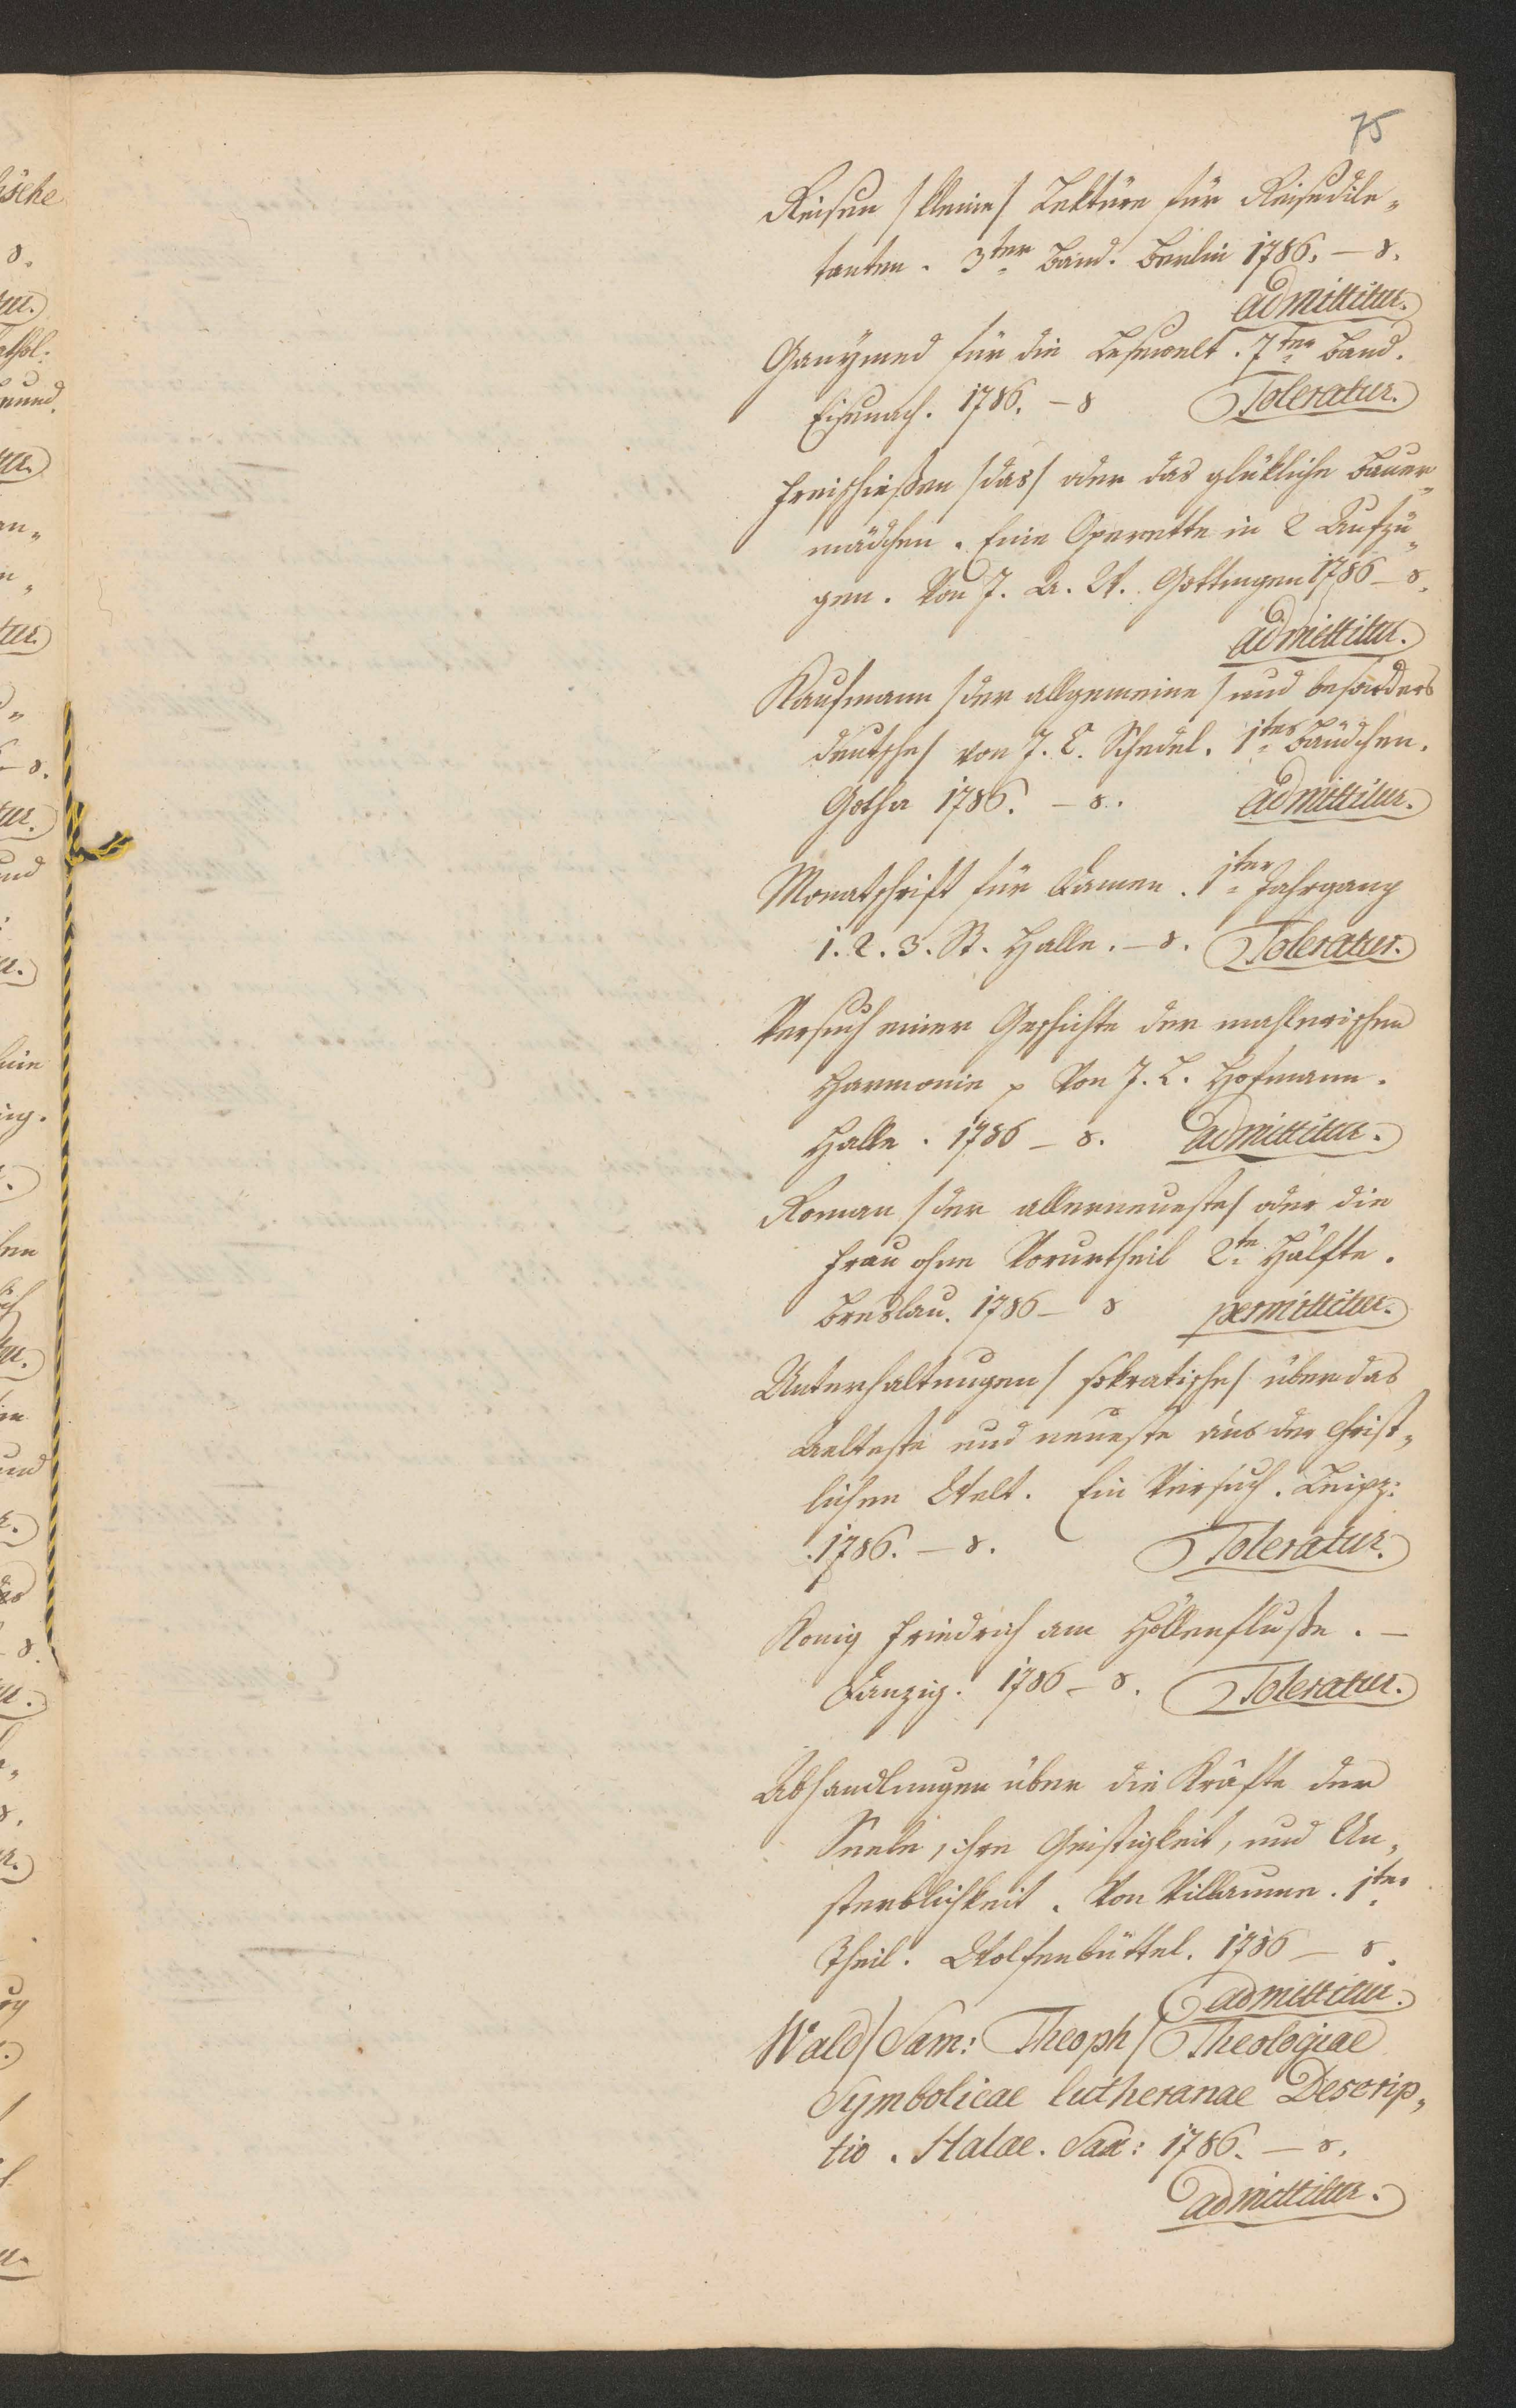 75
Reisen /kleine/ Lektüre für Reisedile„
tanten. 3ter Band. Berlin 1786. – 8.
admittitur.
Ganÿmed für die Lesewelt. 7ter Band.
Eisenach. 1786. – 8 Toleratur.
Freischießen /das/ oder das glükliche Bauer„
mädchen. Eine Operette in 2 Aufzü„
gen. Von J. A. W. Gottingen 1786 – 8.
admittitur.
Kaufmann /der allgemeine/ und besonders
deutsche/ von J. C. Schedel. 1tes Bändchen.
Gotha 1786. – 8. admittitur.
Monatschrift für Damen. 1ter Jahrgang
1. 2. 3. St. Halle. – 8. Toleratur.
Versuch einer Geschichte der mahlerischen
Harmonie p Von J. L. Hofmann.
Halle. 1786 – 8. admittitur.
Roman /der allerneueste/ oder die
Frau ohne Vorurtheil 2te Hälfte.
Breslau. 1786 – 8 permittitur.
Unterhaltungen /sokratische/ über das
aelteste und neueste aus der Christ„
lichen Welt. Ein Versuch. Leipz:
1786. – 8. Toleratur.
Konig Friedrich am Höllenfluße. –
Danzig. 1786 – 8. Toleratur.
Abhandlungen über die Kräfte der
Seele, ihre Geistigkeit, und Un„
sterblichkeit. Von Villaume. 1ter
Theil. Wolfenbüttel. 1786 – 8.
admittitur.
Wald /Sam: Theoph/ Theologiae
Symbolicae lutheranae Descrip„
tio. Halae. Sax: 1786. – 8.
admittitur.